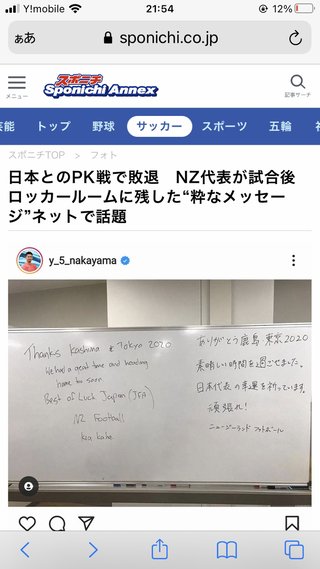 Y!mobile 21:54 12%
ぁあ sponichi.co.jp
スポニチ
Sponichi Annex
メニュー 記事サーチ
芸能 トップ 野球 サッカー スポーツ 五輪
スポニチTOP > フォト
日本とのPK戦で敗退　NZ代表が試合後
ロッカールームに残した“粋なメッセー
ジ”ネットで話題
y_5_nakayama
Thanks Kashima & Tokyo 2020
We had a great time and heading
home to soon
Best of Luck Japan (JFA)
NZ Football
kia kaha
ありがとう鹿島 東京2020
素晴しい時間を過ごせました。
日本代表の幸運を祈っています。
頑張れ!
ニュージーランド フットボール